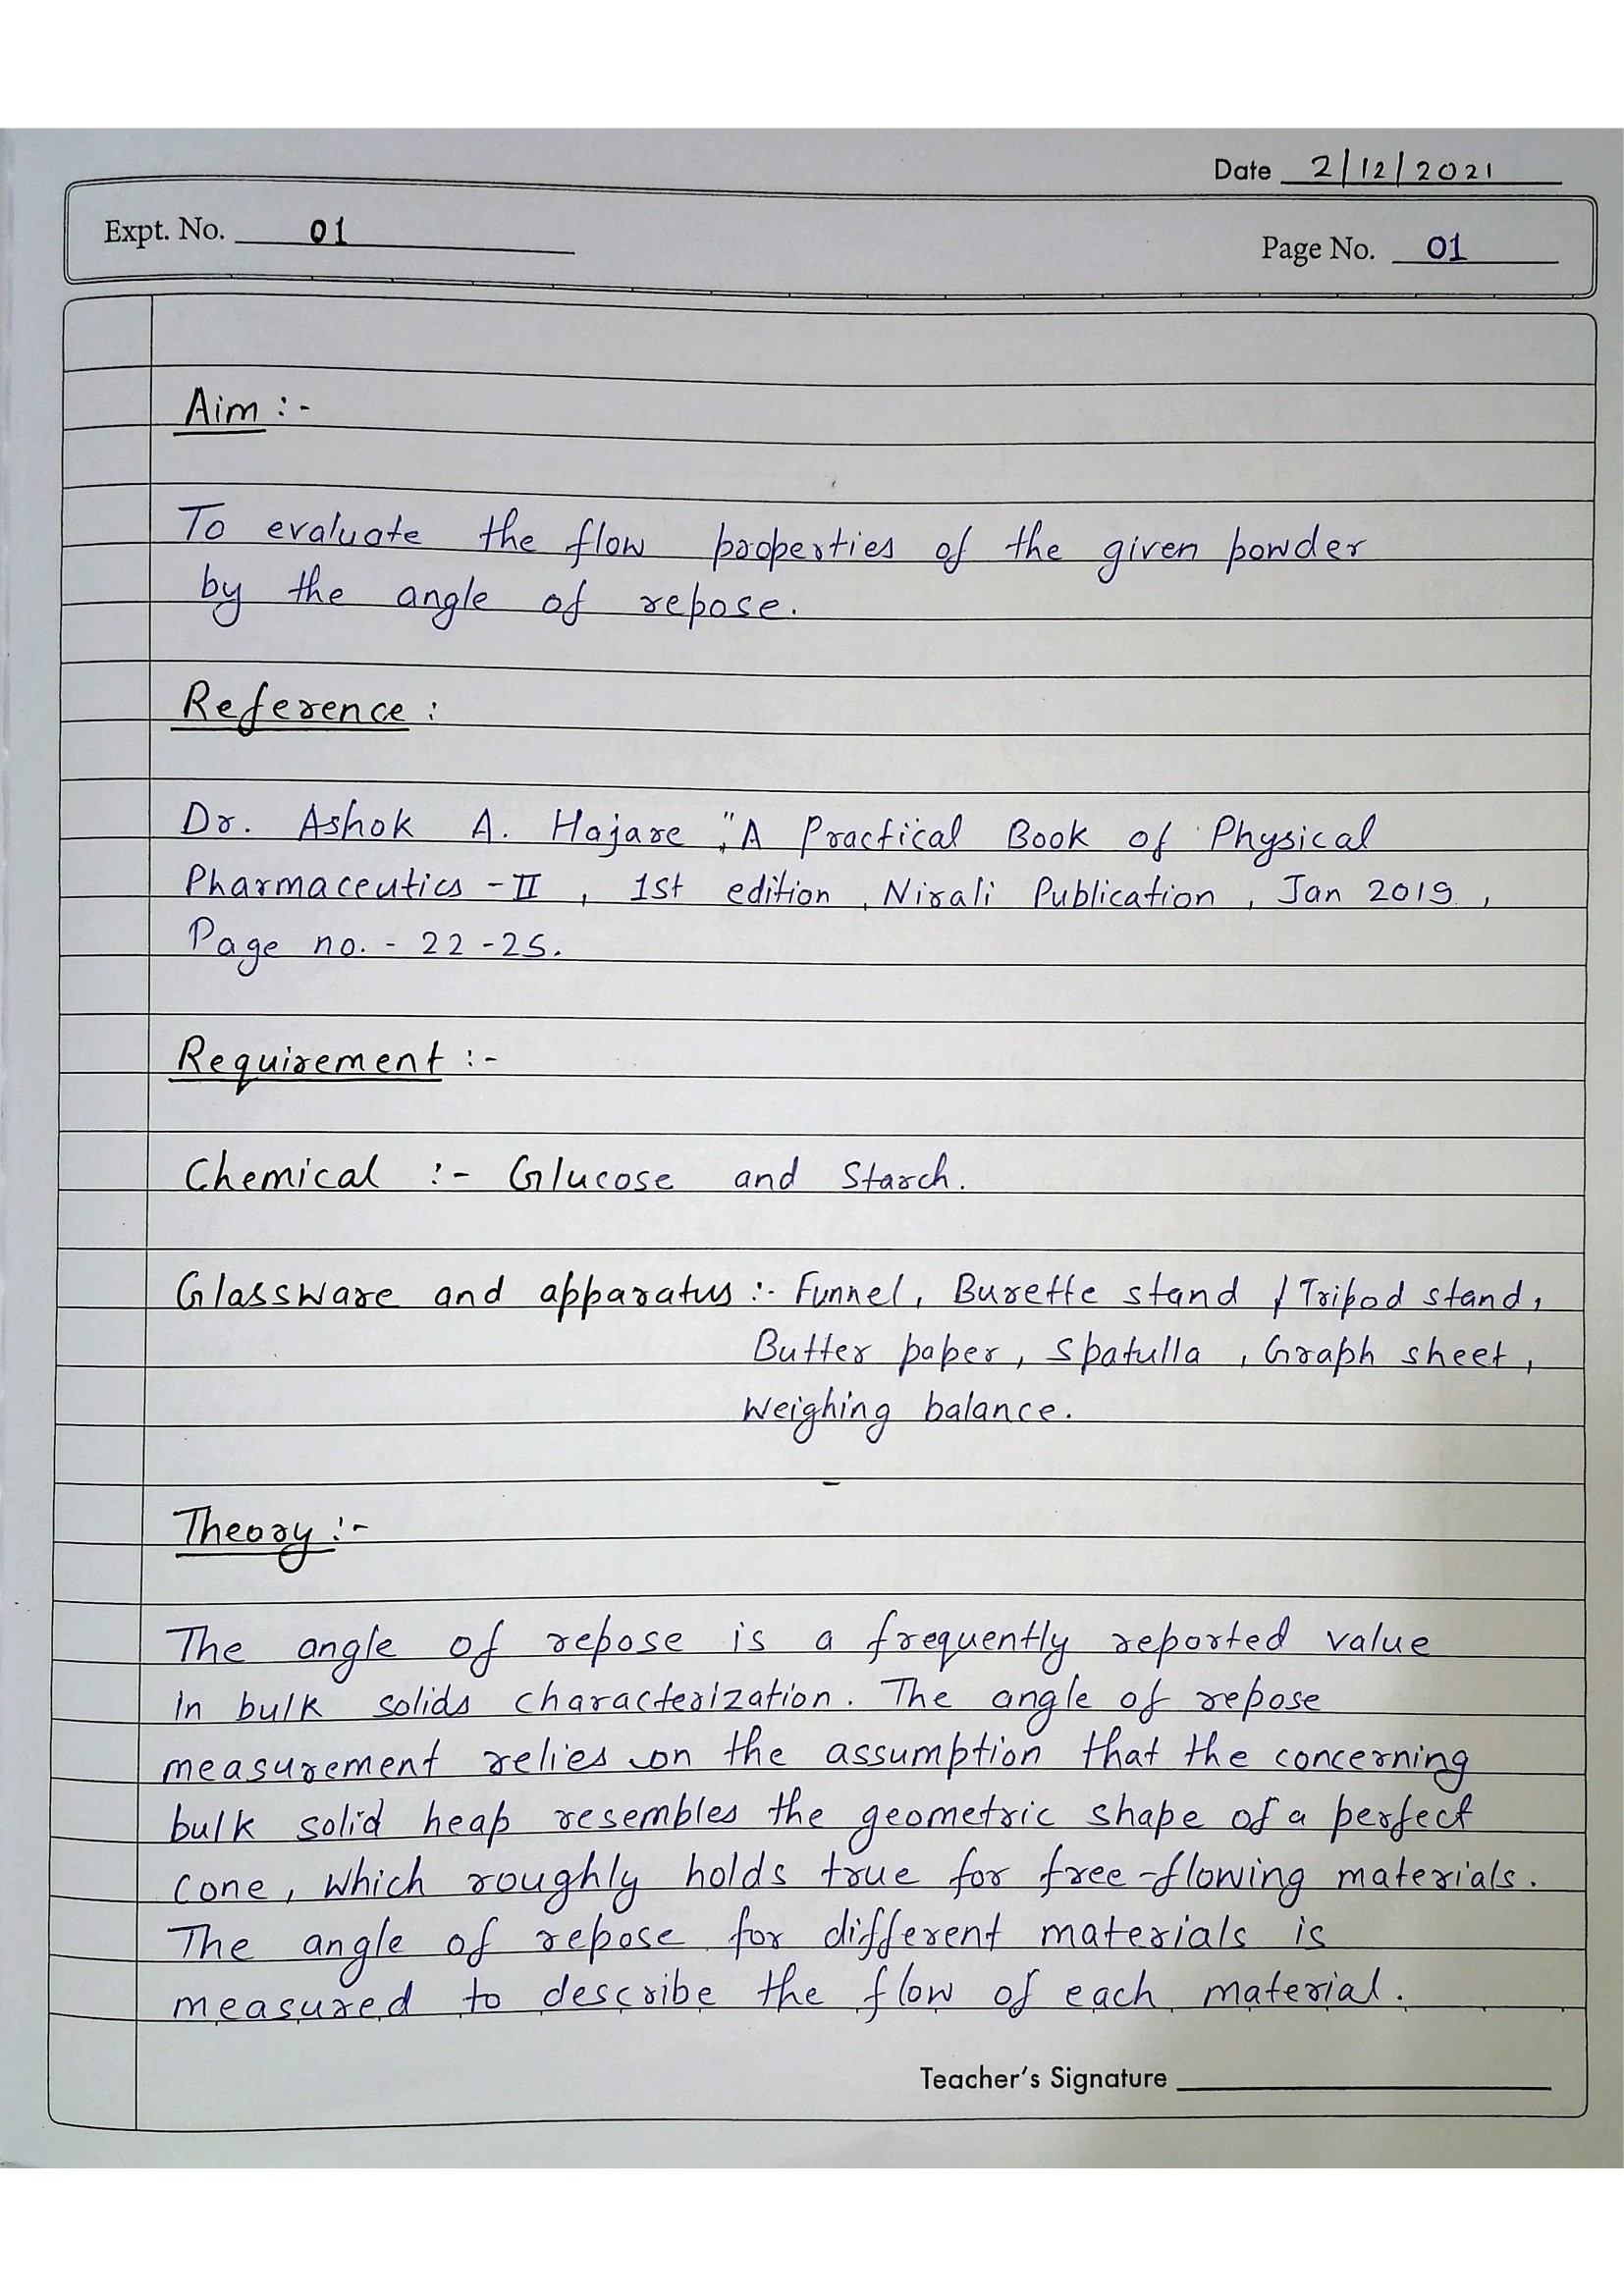 Date 2/12/2021
Expt. No. 01
Page No. 01
Aim :-
To evaluate the flow properties of the given powder
by the angle of repose.
Reference :
Dr. Ashok A. Hajare ,"A Practical Book of Physical
Pharmaceutics - II , 1st edition , Nirali Publication , Jan 2019 ,
Page no. - 22 - 25.
Requirement :-
Chemical :- Glucose and Starch.
Glassware and apparatus :- Funnel, Burette stand / Tripod stand,
Butter paper, Spatulla , Graph sheet,
Weighing balance.
Theory :-
The angle of repose is a frequently reported value
in bulk solids characterization. The angle of repose
measurement relies on the assumption that the concerning
bulk solid heap resembles the geometric shape of a perfect
cone, which roughly holds true for free-flowing materials.
The angle of repose for different materials is
measured to describe the flow of each material.
Teacher's Signature